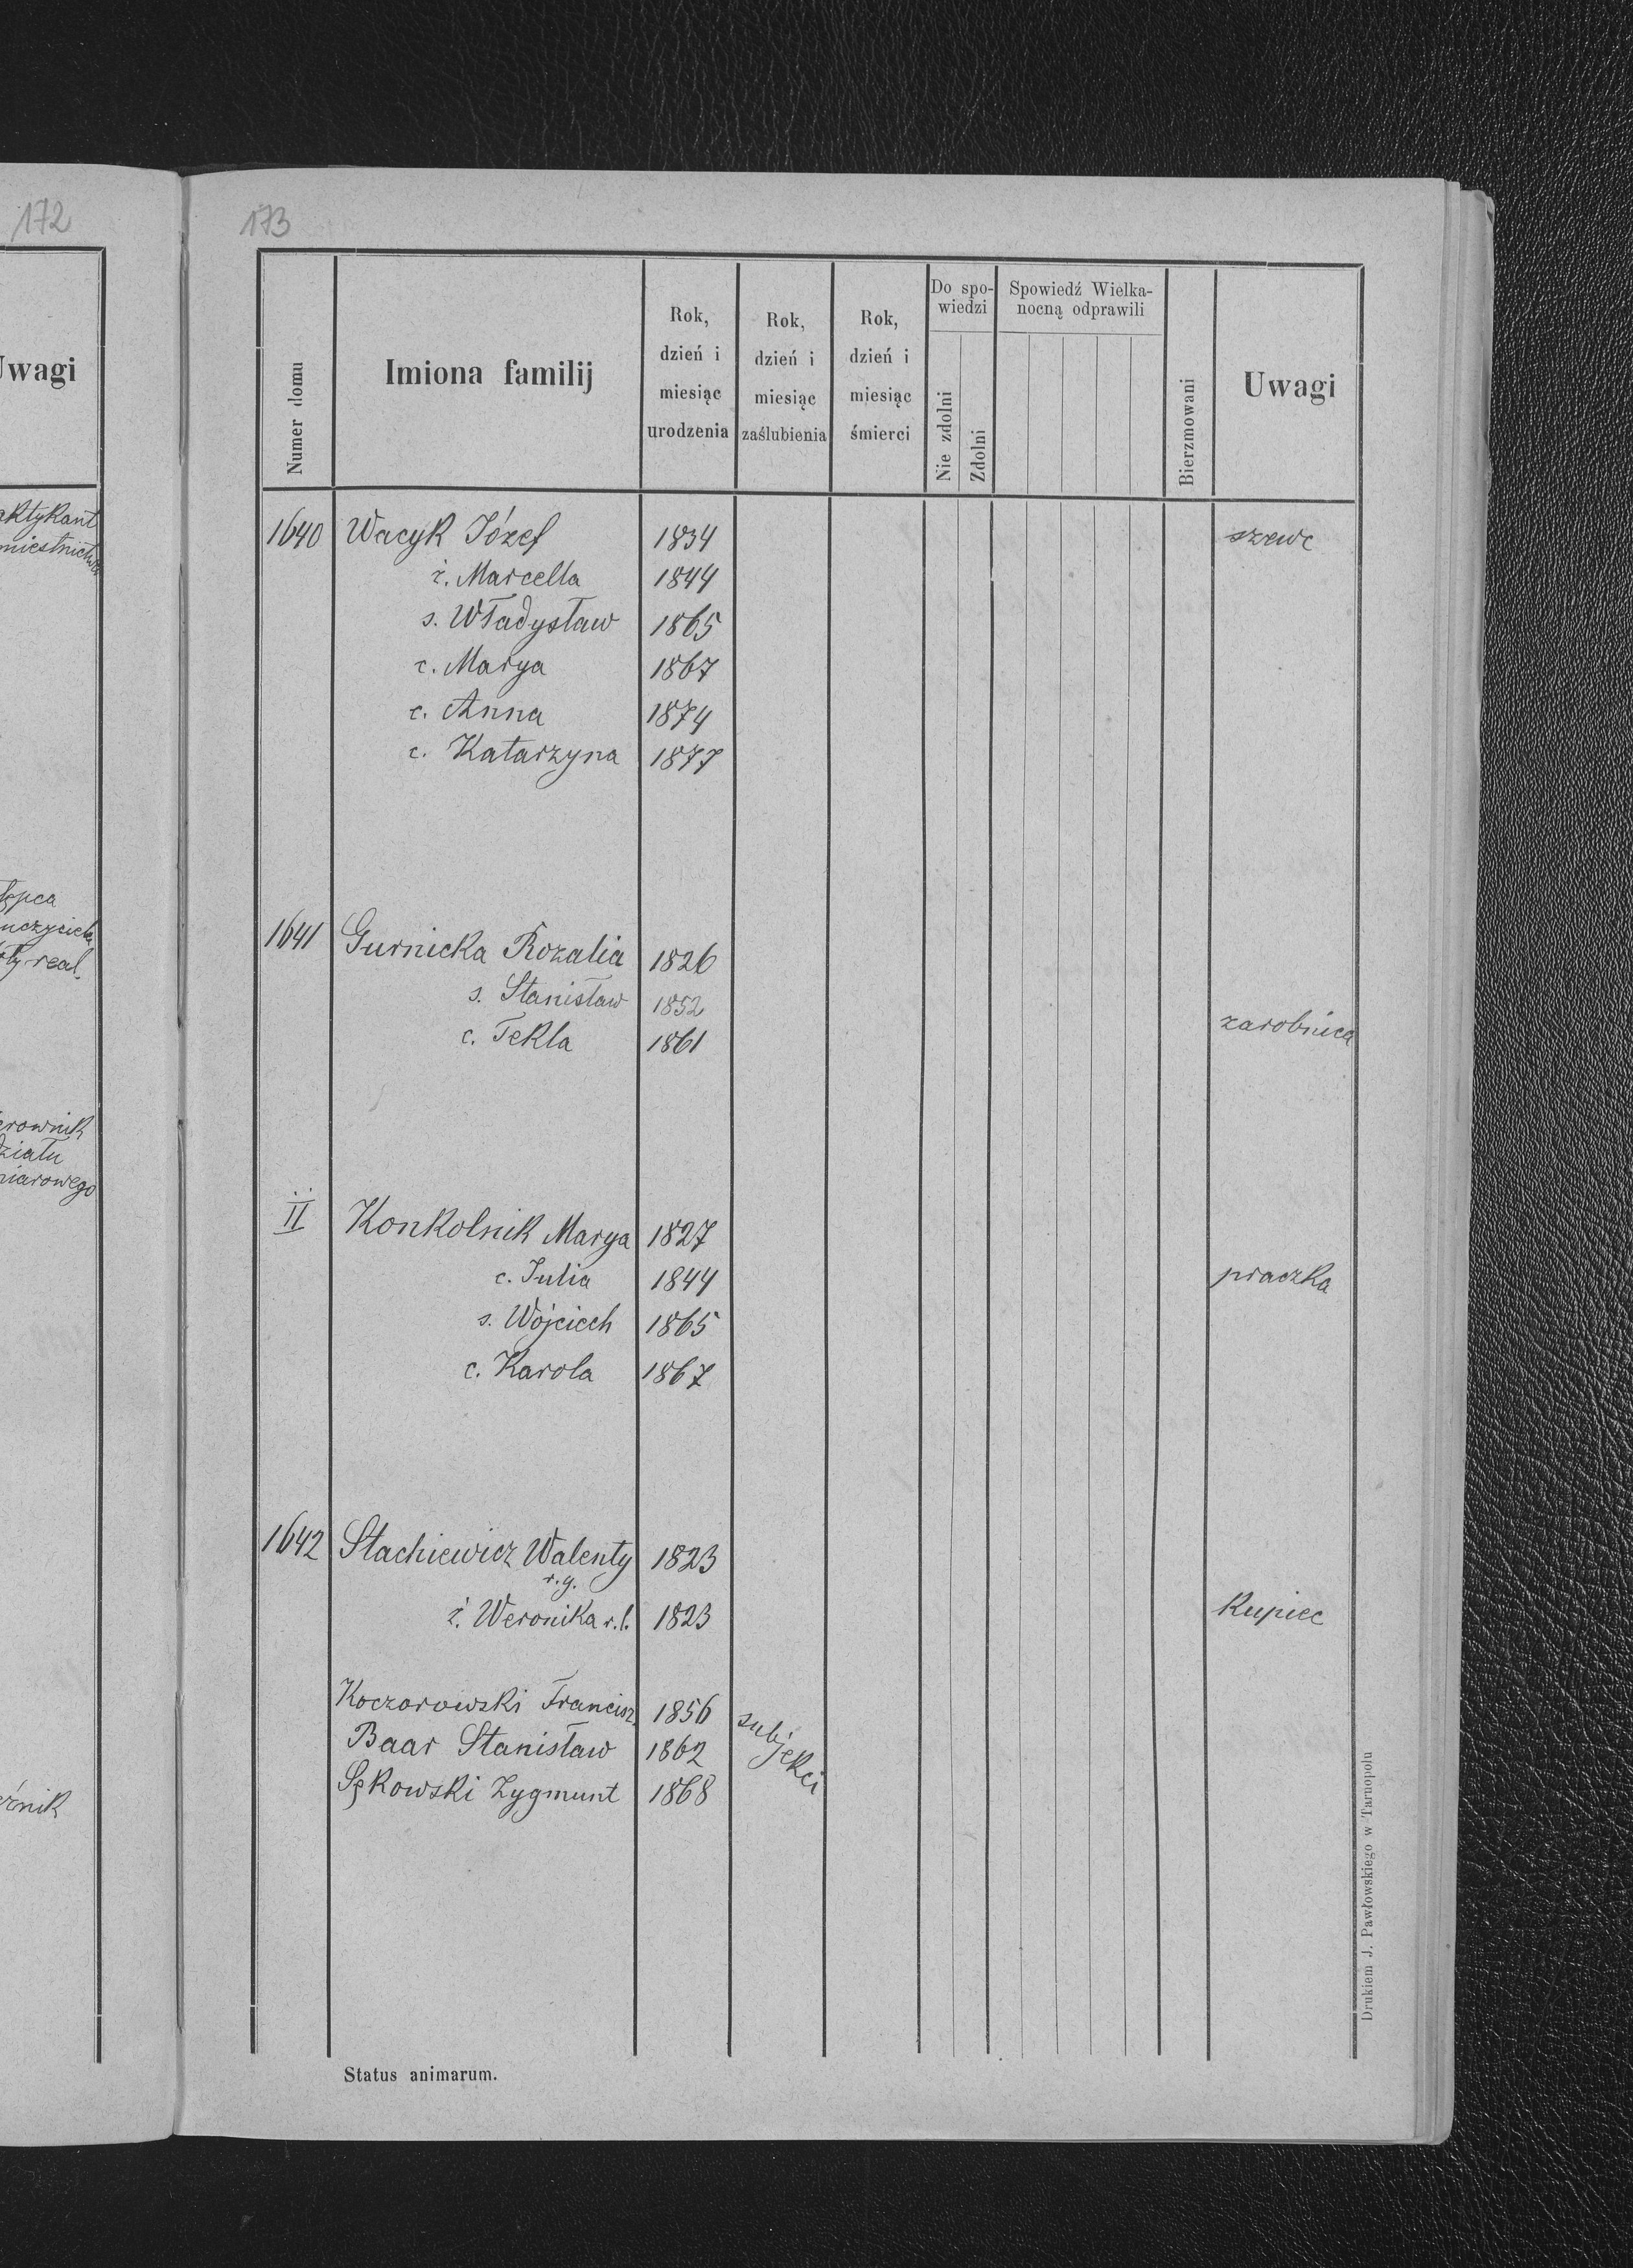 172
Uwagi
real.
173
Numer domu
Imiona familij
Rok,
dzień i
miesiąc
urodzenia
Rok,
dzień i
miesiąc
zaślubienia
Rok,
dzień i
miesiąc
śmierci
Do spo-
wiedzi
Nie zdolni
Zdolni
Spowiedź Wielka-
nocną odprawili
Bierzmowani
Uwagi
1640 Wacyk Józef 1834 szewc
ż. Marcella 1844
s. Władysław 1865
c. Marya 1867
c. Anna 1874
c. Katarzyna 1877
1641 Gurnicka Rozalia 1826
s. Stanisław 1852
c. Tekla 1861 zarobnica
II Konkolnik Marya 1827
c. Julia 1844 praczka
s. Wojciech 1865
c. Karola 1867
1642 Stachiewicz Walenty 1823
r. g.
ż. Weronika r. l. 1823 Kupiec
Koczorowski Francisz. 1856
Baar Stanisław 1862 subjekci
Sękowski Zygmunt 1868
Status animarum.
Drukiem J. Pawłowskiego w Tarnopolu